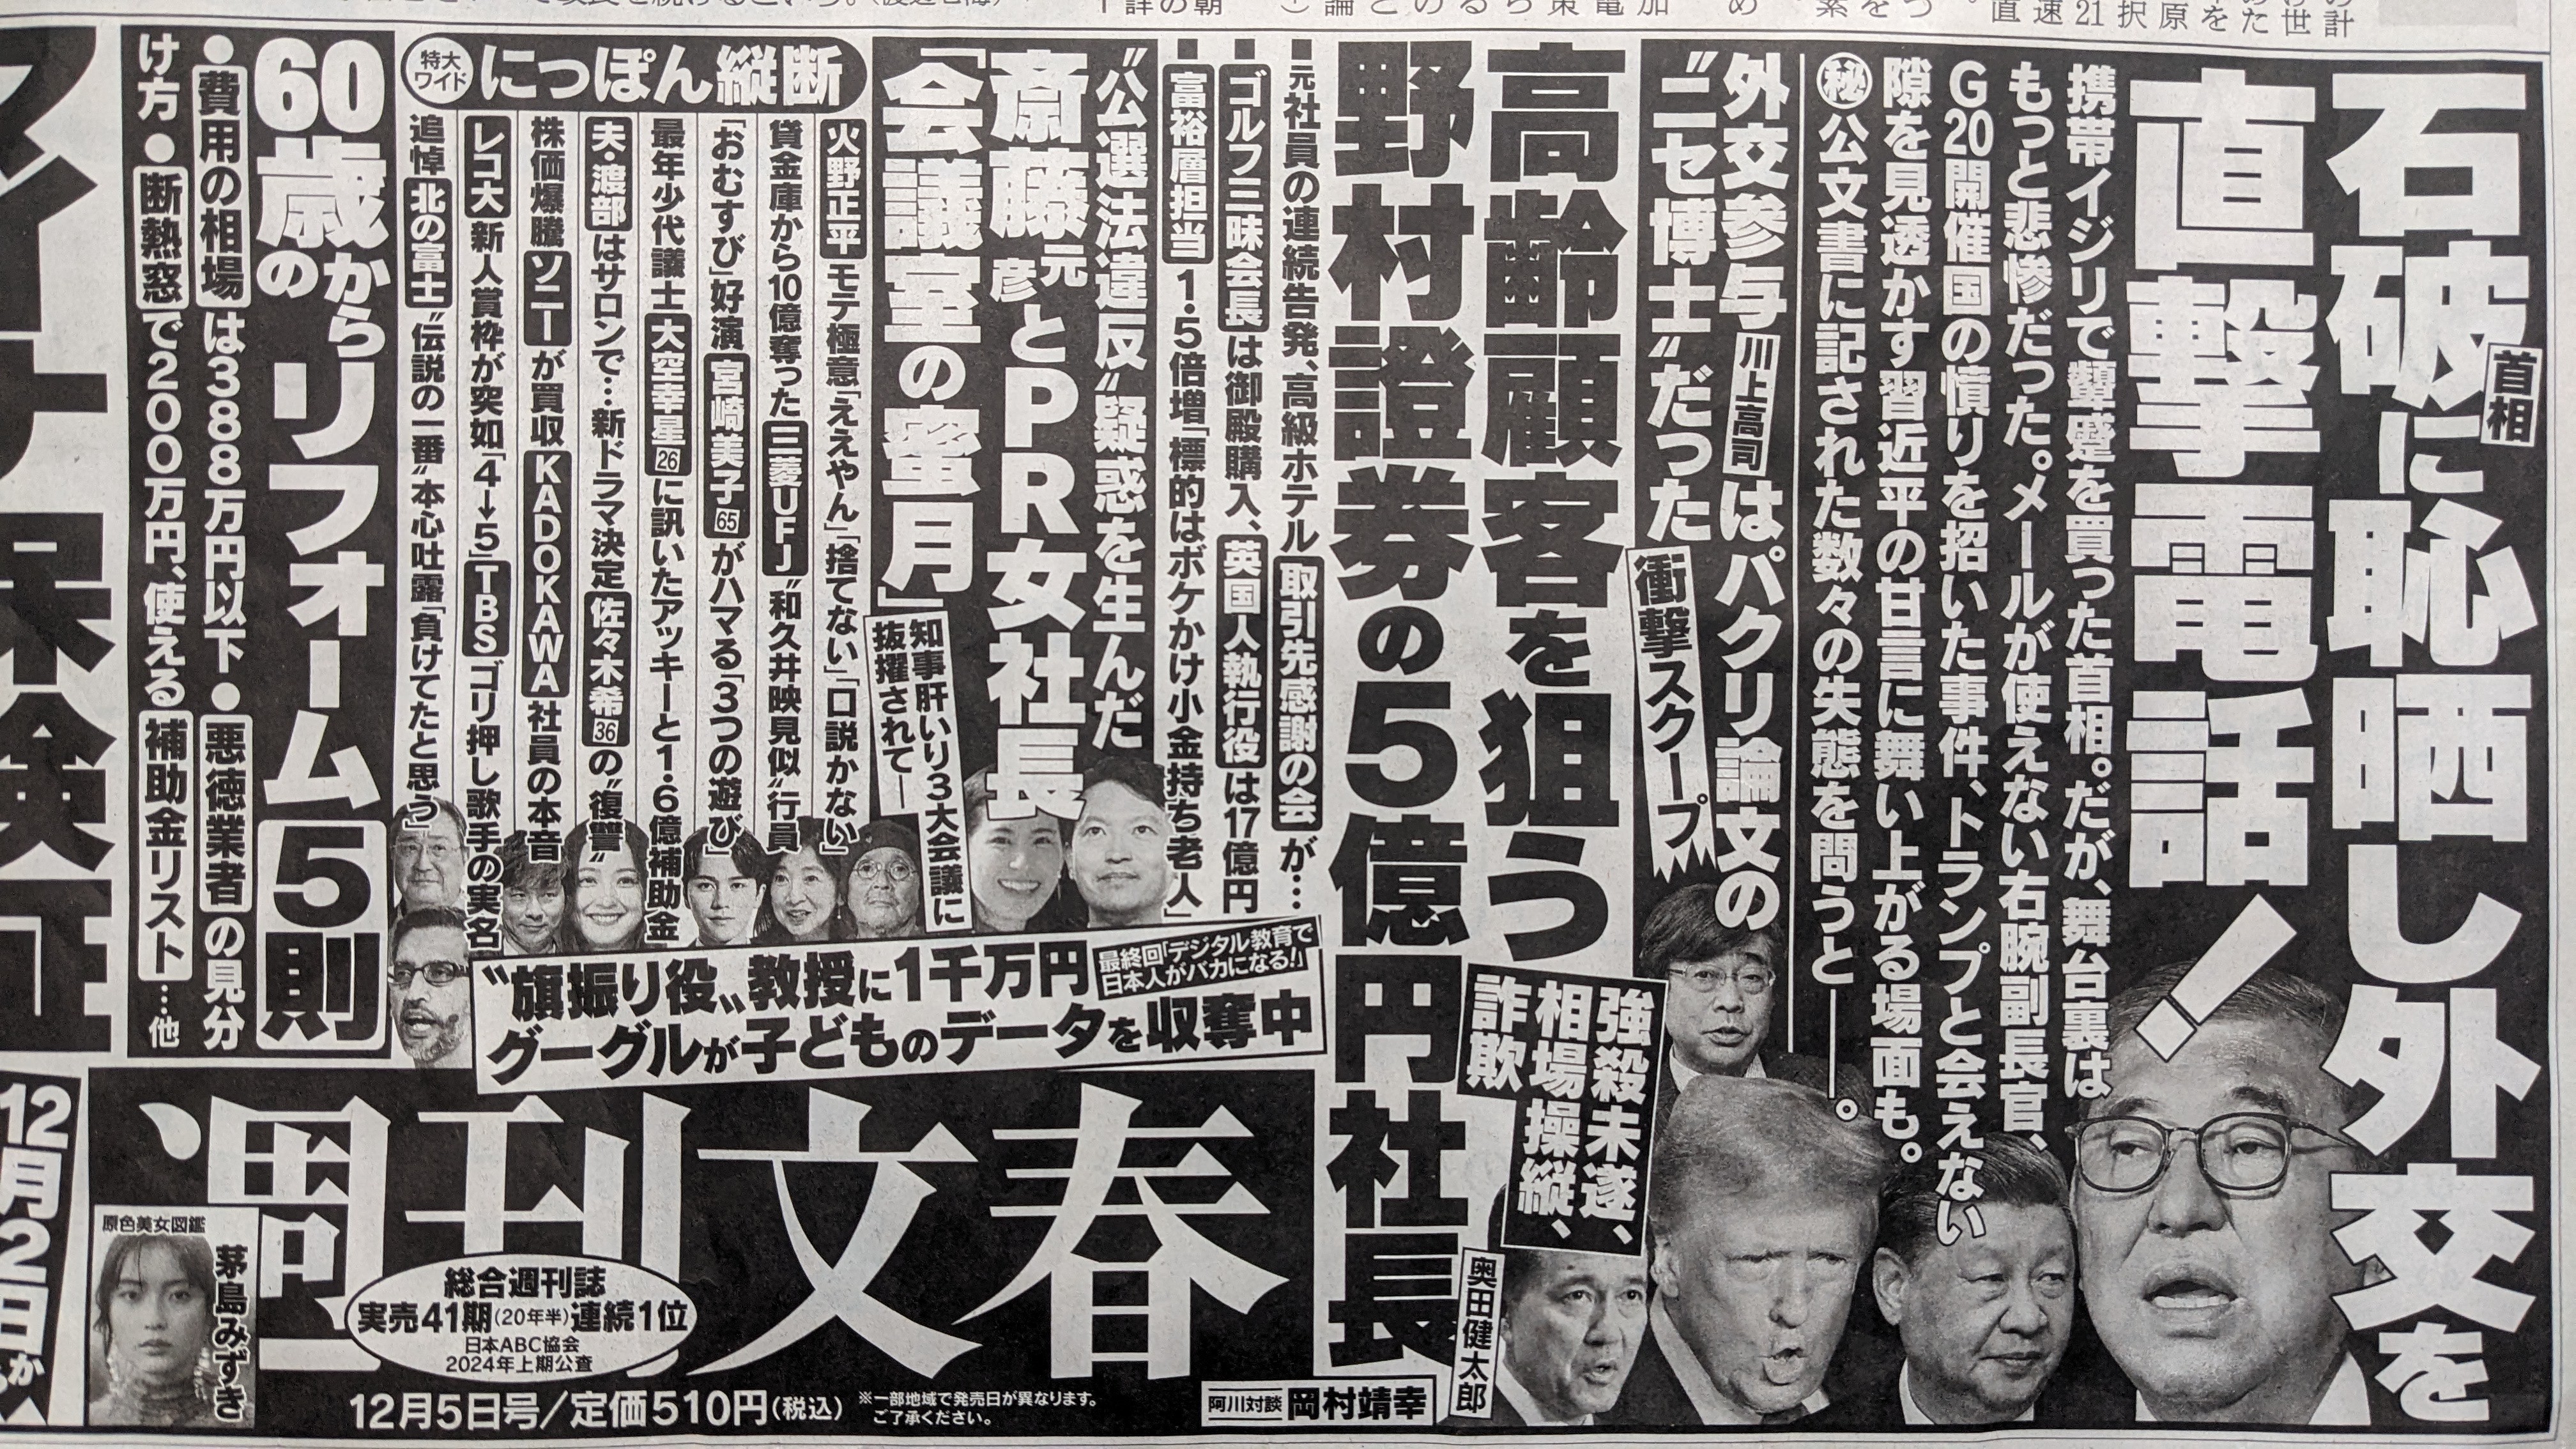 石破首相に恥晒し外交を
直撃電話！
携帯イジリで顰蹙を買った首相。だが、舞台裏は
もっと悲惨だった。メールが使えない右腕副長官、
G20開催国の憤りを招いた事件、トランプと会えない
隙を見透かす習近平の甘言に舞い上がる場面も。
㊙公文書に記された数々の失態を問うと――。
外交参与川上高司はパクリ論文の
〝ニセ博士〟だった
衝撃スクープ
高齢顧客を狙う
野村證券の5億円社長
強殺未遂、
相場操縦、
詐欺
奥田健太郎
▪元社員の連続告発、高級ホテル取引先感謝の会が…
▪ゴルフ三昧会長は御殿購入、英国人執行役は17億円
▪富裕層担当1・5倍増「標的はボケかけ小金持ち老人」
〝公選法違反〟疑惑を生んだ
斎藤元彦とPR女社長
「会議室の蜜月」
知事肝いり3大会議に
抜擢されて―
特大ワイド にっぽん縦断
火野正平モテ極意「ええやん」「捨てない」「口説かない」
貸金庫から10億奪った三菱UFJ〝和久井映見似〟行員
「おむすび」好演 宮崎美子65がハマる「3つの遊び」
最年少代議士大空幸星26に訊いたアッキーと1・6億補助金
夫・渡部はサロンで…新ドラマ決定 佐々木希36の〝復讐〟
株価爆騰ソニーが買収KADOKAWA社員の本音
レコ大新人賞枠が突如「4→5」TBSゴリ押し歌手の実名
追悼北の富士〝伝説の一番〟本心吐露「負けてたと思う」
60歳からの
リフォーム5則
●費用の相場は388万円以下●悪徳業者の見分
け方●断熱窓で200万円、使える補助金リスト…他
〝旗振り役〟教授に1千万円
最終回「デジタル教育で
日本人がバカになる！」
グーグルが子どものデータを収奪中
週刊文春
原色美女図鑑
茅島みずき
総合週刊誌
実売41期(20年半)連続1位
日本ABC協会
2024年上期公査
12月5日号/定価510円(税込)
※一部地域で発売日が異なります。
ご了承ください。
阿川対談 岡村靖幸
マイナ保険証
12月2日か